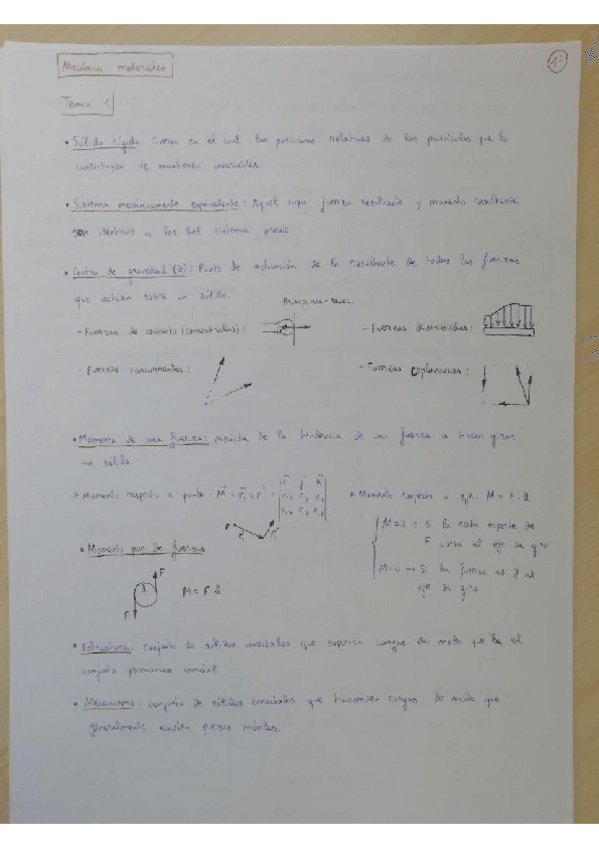 Mecánica materiales
1
Tema 1
• Sólido rígido: Cuerpo en el cual las posiciones relativas de las partículas que lo
constituyen se mantienen invariables.
• Sistema mecánicamente equivalente: Aquel cuya fuerza resultante y momento resultante
son idénticos a los del sistema previo.
• Centro de gravedad (G): Punto de aplicación de la resultante de todas las fuerzas
que actúan sobre un sólido.
- Fuerzas de contacto (concentradas):
- Fuerzas distribuidas:
- Fuerzas concurrentes:
- Fuerzas coplanarias:
• Momento de una fuerza: medida de la tendencia de una fuerza a hacer girar
un sólido.
* Momento respecto a punto: M =
* Momento respecto a eje: M = F · d
M=0 → Si la recta soporte de
F corta al eje de giro
M=0 → Si la fuerza es // al
eje de giro
• Momento par de fuerzas
F
d
F
M = F · d
• Estructura: conjunto de sólidos conectados que soportan cargas de modo que el
conjunto permanece inmóvil.
• Mecanismo: conjunto de sólidos conectados que transmiten cargas de modo que
generalmente existen móviles.